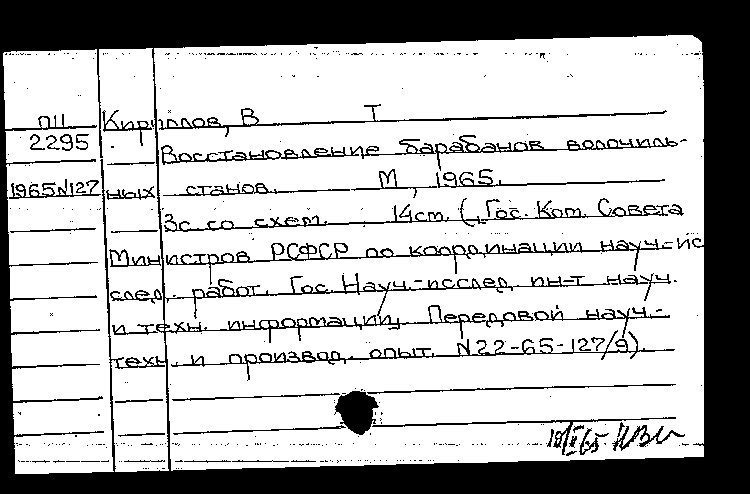 ПII Кириллов, В Т
2295
Восстановление барабанов волочиль-
1965N127 ных станов. М, 1965.
3с. со схем. 14см. (Гос. Ком. Совета
Министров РСФСР по координации науч-ис
след. работ. Гос. Науч.-исслед. ин-т науч.
и техн. информации. Передовой науч.-
техн. и производ. опыт. N22-65-127/9).